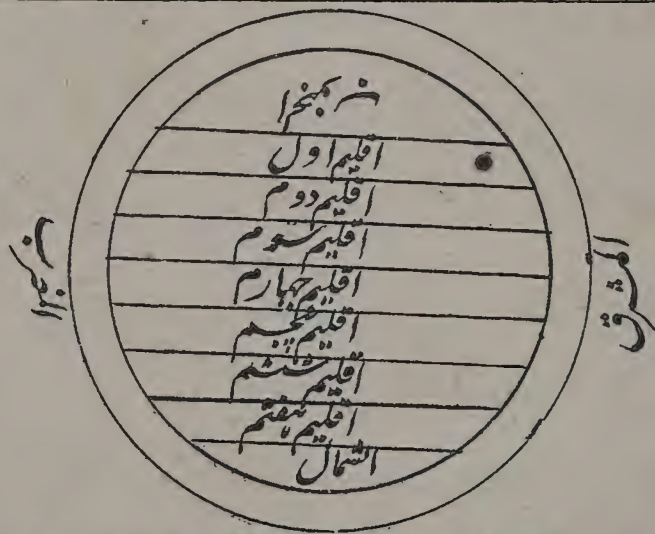 اقلیم اول
اقلیم دوم
اقلیم سوم
اقلیم چهارم
اقلیم پنجم
اقلیم ششم
اقلیم هفتم
الشمال
المشرق